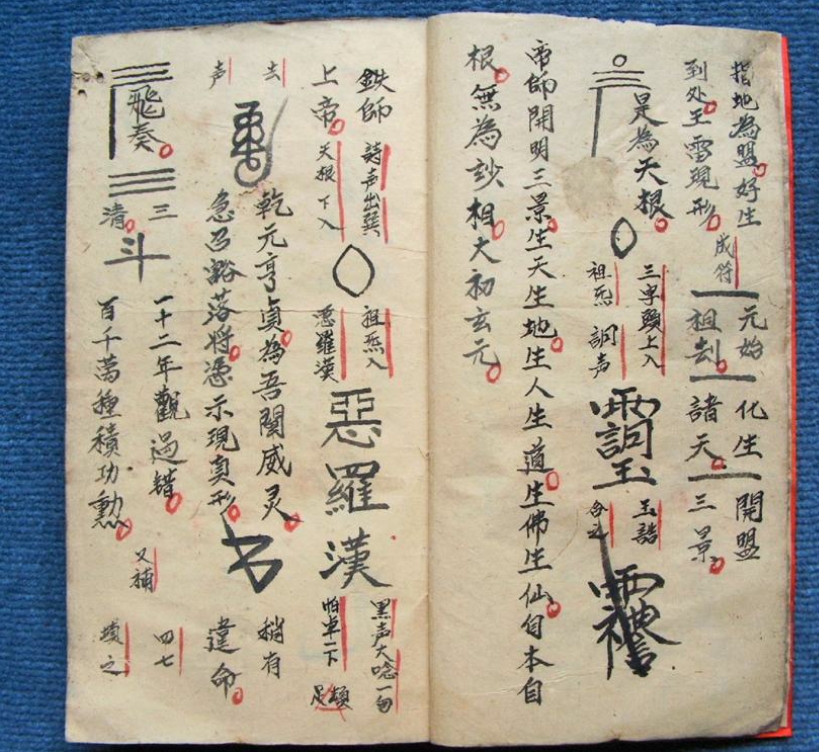 指地為盟好生
到处王雷現形
成符
元始 化生 開盟
祖刦 諸天 三景
是為天根
三字頭上入
祖炁 調声
玉誥
合之
帝師開明三景生天生地生人生道生佛生仙自本自
根無為妙相大初玄元
鉄師 詩声出巽
上帝 天根下入
祖炁入
惡羅漢
惡羅漢
黑声大唸一句
怕卓一下
去声
乾元亨貞為吾闡威灵 稍有
急召豁落將憑示現真形 違命
飛奏
三清
斗
一十二年觀過錯 四七
百千萬種積功勲 又補 讀之